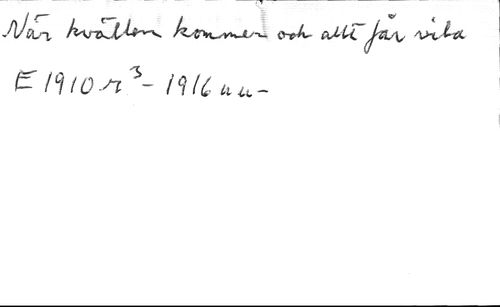 När kvällen kommer och allt får vila
E 1910 r³ - 1916 u u -